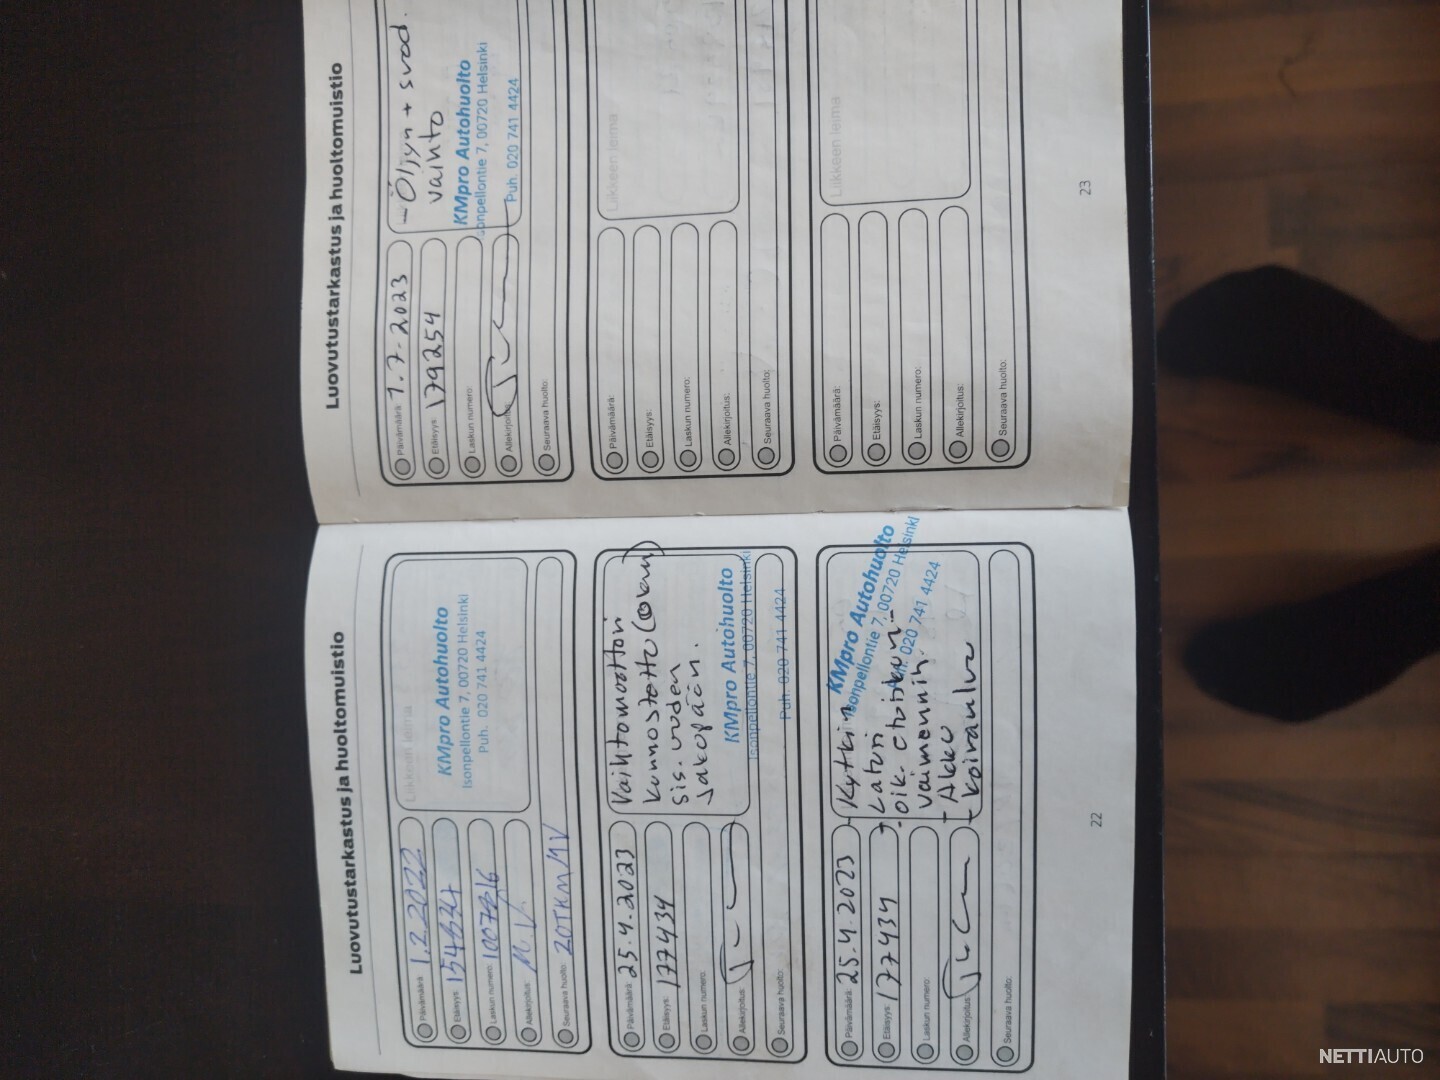 Luovutustarkastus ja huoltomuistio
Päivämäärä: 1.2.2022
Etäisyys:
Laskun numero:
Allekirjoitus: M.V.
Seuraava huolto: 20TKM/1V
Liikkeen leima
KMpro Autohuolto
Isonpellontie 7, 00720 Helsinki
Puh. 020 741 4424
Päivämäärä: 25.4.2023
Etäisyys: 177434
Laskun numero:
Allekirjoitus:
Seuraava huolto:
Vaihtomoottori
kunnostettu
sis. uuden
jakopään.
KMpro Autohuolto
Isonpellontie 7, 00720 Helsinki
Puh. 020 741 4424
Päivämäärä: 25.4.2023
Etäisyys: 177434
Laskun numero:
Allekirjoitus:
Seuraava huolto:
- Kytkin
- Laturi
- oik.
vaimennin.
- Akku
KMpro Autohuolto
Isonpellontie 7, 00720 Helsinki
Puh. 020 741 4424
22
Luovutustarkastus ja huoltomuistio
Päivämäärä: 1.7.2023
Etäisyys: 179254
Laskun numero:
Allekirjoitus:
Seuraava huolto:
- Öljyn + suod.
vaihto
KMpro Autohuolto
Isonpellontie 7, 00720 Helsinki
Puh. 020 741 4424
Päivämäärä:
Etäisyys:
Laskun numero:
Allekirjoitus:
Seuraava huolto:
Liikkeen leima
Päivämäärä:
Etäisyys:
Laskun numero:
Allekirjoitus:
Seuraava huolto:
Liikkeen leima
23
NETTIAUTO